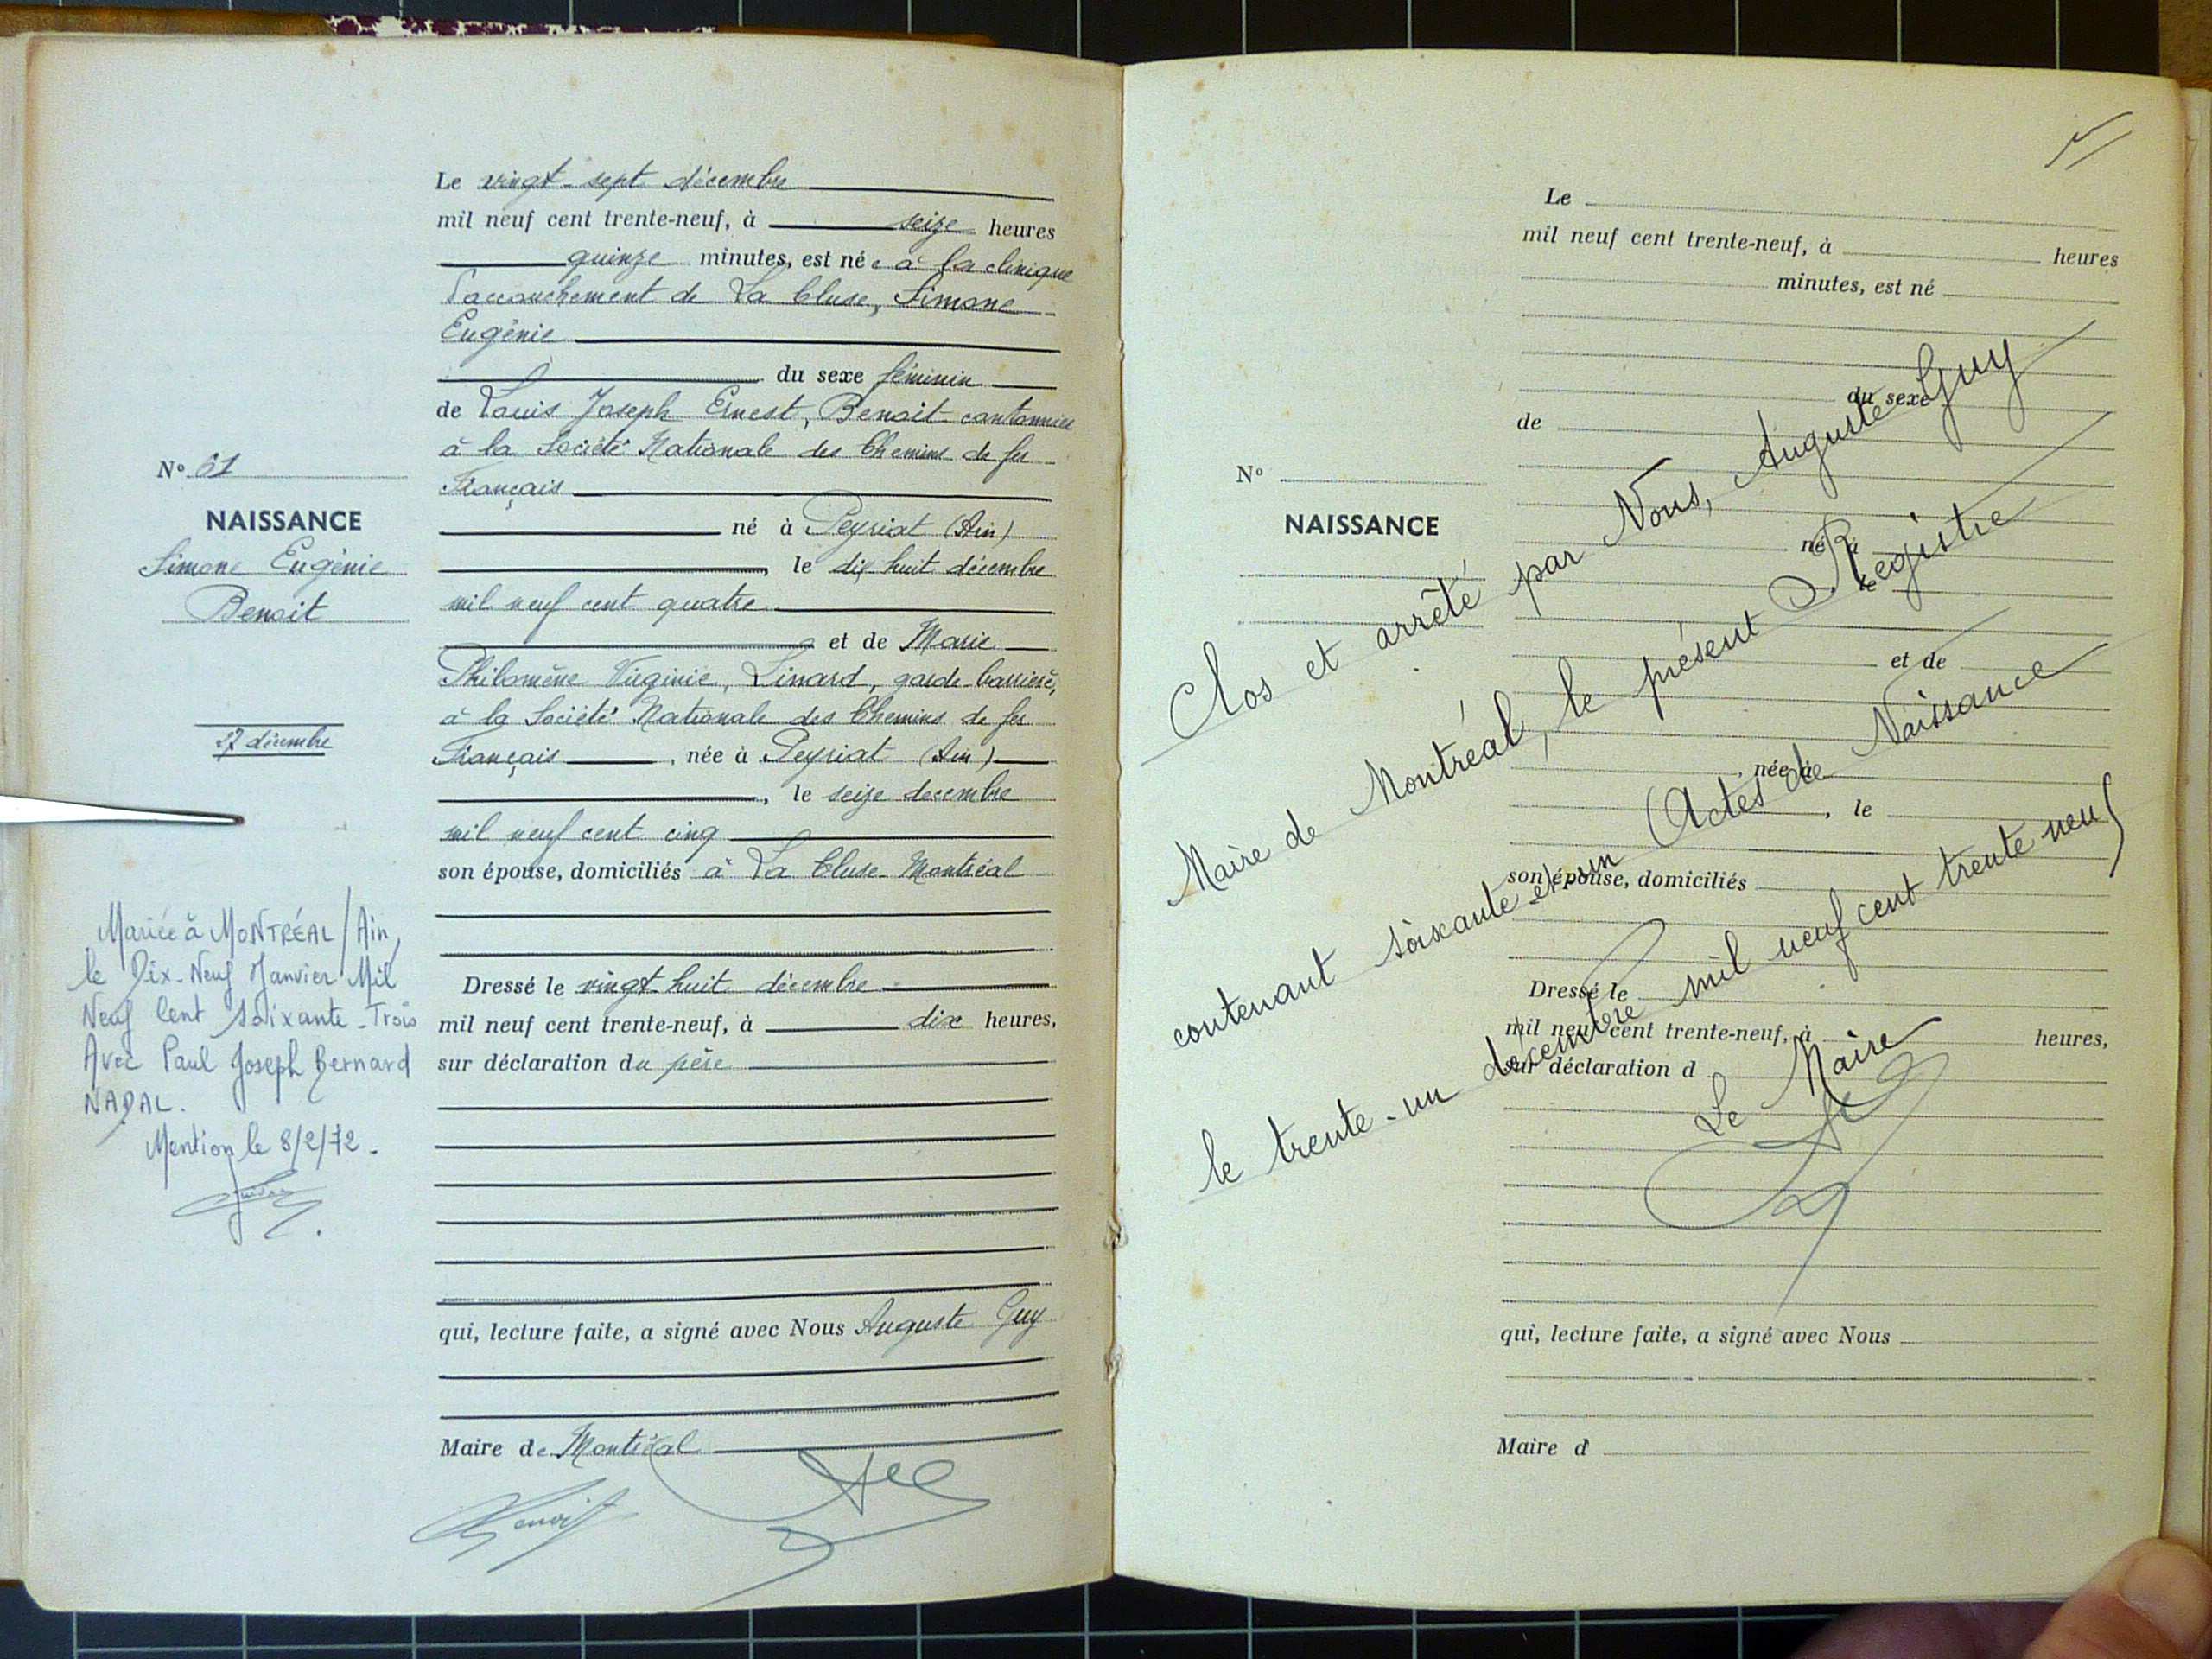 Le vingt-sept décembre
mil neuf cent trente-neuf, à seize heures
quinze minutes, est née à la clinique
d'accouchement de La Cluse, Simone
Eugénie
du sexe féminin
de Louis Joseph Ernest, Benoit cantonnier
à la Société Nationale des Chemins de fer
Français
né à Peyriat (Ain)
, le dix huit décembre
mil neuf cent quatre
et de Marie
Philomène Virginie, Linard, garde barrière,
à la Société Nationale des Chemins de fer
Français, née à Peyriat (Ain)
, le seize decembre
mil neuf cent cinq
son épouse, domiciliés à La Cluse-Montréal
Dressé le vingt-huit décembre
mil neuf cent trente-neuf, à dix heures,
sur déclaration du père
qui, lecture faite, a signé avec Nous Auguste Guy
Maire de Montréal
Benoit
N° 61
NAISSANCE
Simone Eugénie
Benoit
27 décembre
Mariée à MONTRÉAL/Ain,
le Dix-Neuf Janvier Mil
Neuf Cent Soixante-Trois
Avec Paul Joseph Bernard
NADAL.
Mention le 8/2/72.
Le
mil neuf cent trente-neuf, à heures
minutes, est né
du sexe
de
né à
le
et de
, née à
, le
son épouse, domiciliés
Dressé le
mil neuf cent trente-neuf, à heures,
sur déclaration d
qui, lecture faite, a signé avec Nous
Maire d
N°
NAISSANCE
Clos et arrêté par Nous, Auguste Guy
Maire de Montréal, le présent Registre
contenant soixante et un (Actes de Naissance
le trente-un décembre mil neuf cent trente neuf
Le Maire